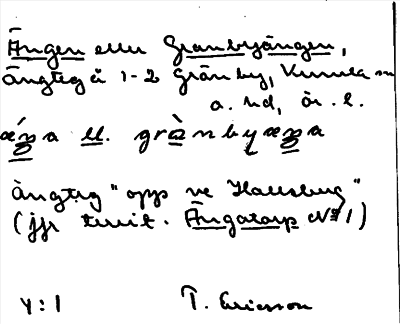 Ängen eller Granbyängen,
Ängteg å 1-2 Gränby, Kumla sn
a. hd, Ör. l.
æ̀ŋa ll. grànbyæŋa
Ängteg "opp ve Hallsberg"
(jfr territ. Ängatorp № 1)
Y:1 T. Ericsson